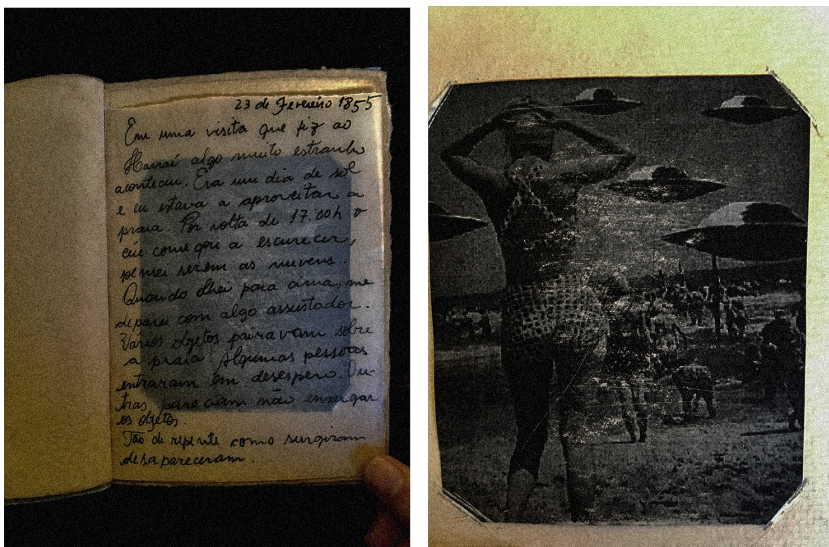 23 de Fevereiro 1855
Em uma visita que fiz ao
Hawaí algo muito estranho
aconteceu. Era um dia de sol
e eu estava a aproveitar a
praia. Por volta de 17.00h o
céu começou a escurecer,
pensei serem as nuvens.
Quando olhei para cima, me
deparei com algo assustador.
Vários objetos pairavam sobre
a praia. Algumas pessoas
entraram em desespero. Ou-
tras pareciam não enxergar
os objetos.
Tão de repente como surgiram
desapareceram.